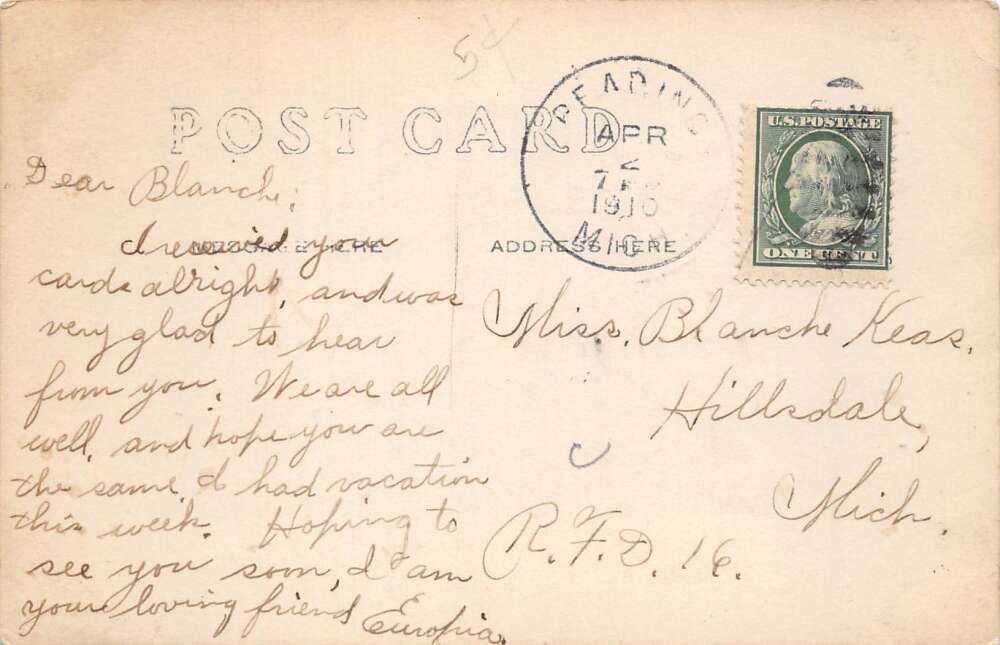 5¢
POST CARD
READING
APR
2
7
1910
MICH.
U.S. POSTAGE
ONE CENT
Dear Blanche;
HERE
I received your
cards alright, and was
very glad to hear
from you. We are all
well, and hope you are
the same, I had vacation
this week. Hoping to
see you soon, I am
your loving friend
ADDRESS HERE
Miss. Blanche Keas,
Hillsdale,
Mich.
R.F.D. 16.